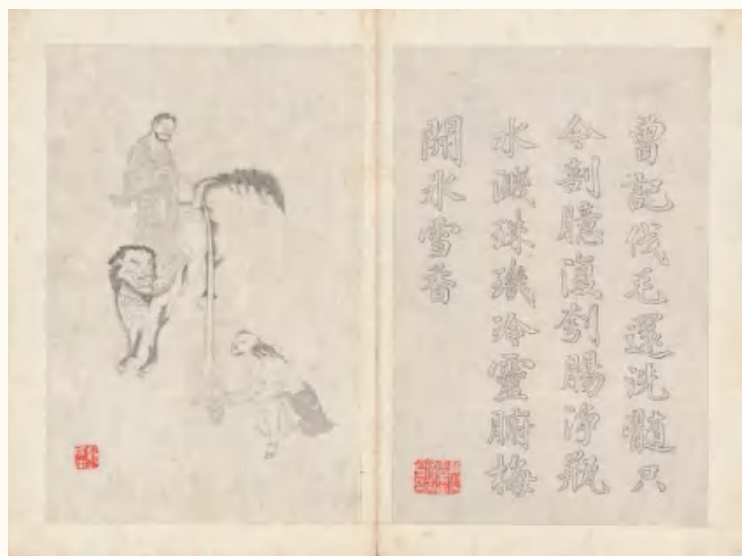 曾記伐毛還洗髓只
今剖臆復刳腸淨瓶
水濺珠璣冷靈腑梅
開氷雪香